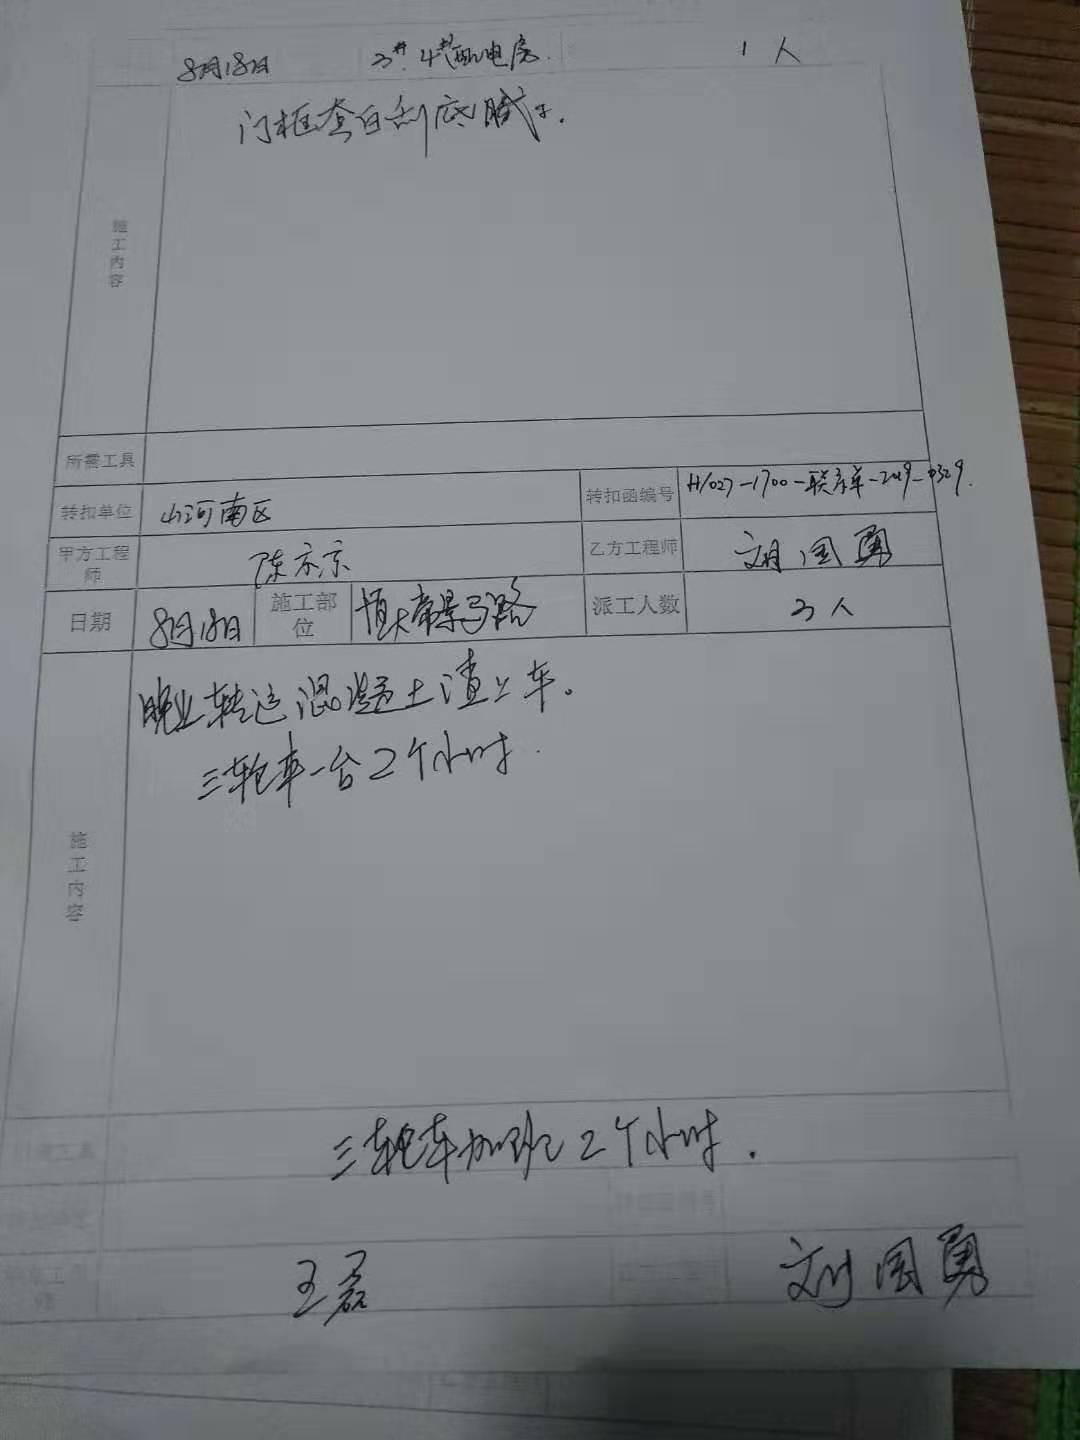 8月18日 3# 4#配电房. 1人
施工内容
门框套白刮底腻子.
所需工具
转扣单位 山河南区 转扣函编号
甲方工程师 陈京京 乙方工程师 刘国勇
日期 8月18日 施工部位 恒大帝景马路 派工人数 3人
施工内容
转运混凝土渣上车.
三轮车一台2个小时.
三轮车加班2个小时.
王磊 刘国勇